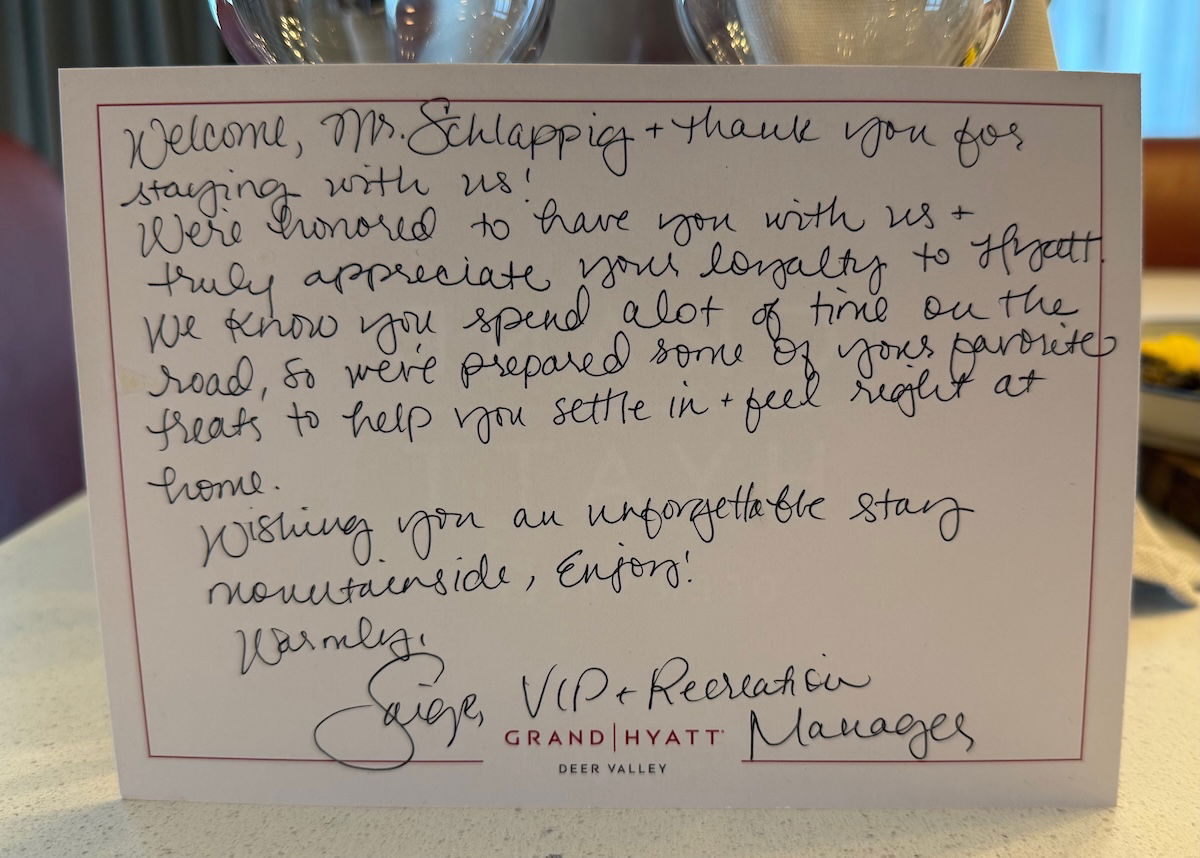 Welcome, Mr. Schlappig + thank you for
staying with us!
We're honored to have you with us +
truly appreciate your loyalty to Hyatt.
We know you spend alot of time on the
road, so we've prepared some of your favorite
treats to help you settle in + feel right at
home.
Wishing you an unforgettable stay
mountainside, Enjoy!
Warmly,
Saige, VIP + Recreation
Manager
GRAND | HYATT
DEER VALLEY